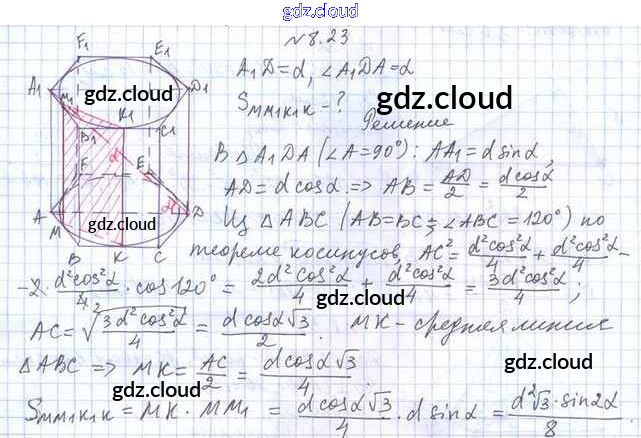 gdz.cloud
№ 8.23
A₁D = d, ∠A₁DA = α
S_MM₁K₁K - ?
Решение
В △A₁DA (∠A = 90°): AA₁ = d sin α,
AD = d cos α ⇒ AB = AD/2 = d cos α/2
Из △ABC (AB = BC; ∠ABC = 120°) по
теореме косинусов, AC² = d²cos²α/4 + d²cos²α/4 -
-2 · d²cos²α/4 · cos 120° = 2d²cos²α/4 + d²cos²α/4 = 3d²cos²α/4;
AC = √(3d²cos²α/4) = d cos α √3/2. MK - средняя линия
△ABC ⇒ MK = AC/2 = d cos α √3/4.
S_MM₁K₁K = MK · MM₁ = d cos α √3/4 · d sin α = d²√3 · sin 2α/8
F₁ E₁
A₁ M₁ D₁
K₁
B₁ C₁
F E
α
A M α D
B K C
gdz.cloud
gdz.cloud
gdz.cloud
gdz.cloud
gdz.cloud
gdz.cloud
gdz.cloud